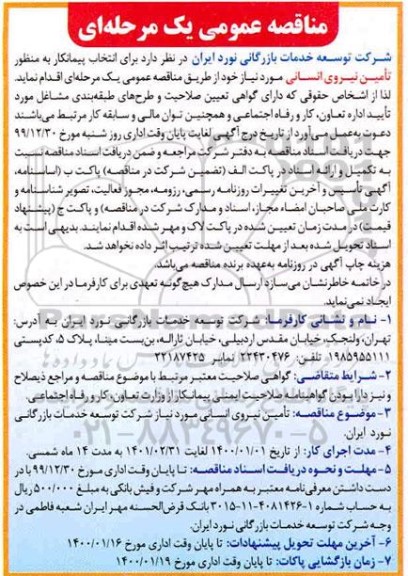 مناقصه عمومی یک مرحله‌ای
شرکت توسعه خدمات بازرگانی نورد ایران در نظر دارد برای انتخاب پیمانکار به منظور
تأمین نیروی انسانی مورد نیاز خود از طریق مناقصه عمومی یک مرحله‌ای اقدام نماید.
لذا از اشخاص حقوقی که دارای گواهی تعیین صلاحیت و طرح‌های طبقه‌بندی مشاغل مورد
تأیید اداره تعاون، کار و رفاه اجتماعی و همچنین توان مالی و سابقه کار مرتبط می‌باشند
دعوت به‌عمل می‌آورد از تاریخ درج آگهی لغایت پایان وقت اداری روز شنبه مورخ ۹۹/۱۲/۳۰
جهت دریافت اسناد مناقصه به دفتر شرکت مراجعه و ضمن دریافت اسناد مناقصه نسبت
به تکمیل و ارائه اسناد در پاکت الف (تضمین شرکت در مناقصه) پاکت ب (اساسنامه،
آگهی تأسیس و آخرین تغییرات روزنامه رسمی، رزومه، مجوز فعالیت، تصویر شناسنامه و
کارت ملی صاحبان امضاء مجاز، اسناد و مدارک شرکت در مناقصه) و پاکت ج (پیشنهاد
قیمت) در مدت زمان تعیین شده در پاکت لاک و مهر شده اقدام نمایند. بدیهی است به
اسناد تحویل شده بعد از مهلت تعیین شده ترتیب اثر داده نخواهد شد.
هزینه چاپ آگهی در روزنامه به‌عهده برنده مناقصه می‌باشد.
در خاتمه خاطرنشان می‌سازد ارسال مدارک هیچ‌گونه تعهدی برای کارفرما در این خصوص
ایجاد نمی‌نماید.
۱- نام و نشانی کارفرما: شرکت توسعه خدمات بازرگانی نورد ایران به آدرس:
تهران، ولنجک، خیابان مقدس اردبیلی، خیابان ثارالله، بن‌بست مینا، پلاک ۵، کدپستی
۱۹۸۵۹۵۵۱۱۱ تلفن: ۲۲۴۳۰۴۷۶ نمابر ۲۲۱۸۷۴۲۵
۲- شرایط متقاضی: گواهی صلاحیت معتبر مرتبط با موضوع مناقصه و مراجع ذیصلاح
و نیز دارا بودن گواهینامه صلاحیت ایمنی پیمانکار از وزارت تعاون، کار و رفاه اجتماعی.
۳- موضوع مناقصه: تأمین نیروی انسانی مورد نیاز شرکت توسعه خدمات بازرگانی
نورد ایران.
۴- مدت اجرای کار: از تاریخ ۱۴۰۰/۰۱/۰۱ لغایت ۱۴۰۱/۰۲/۳۱ به مدت ۱۴ ماه شمسی.
۵- مهلت و نحوه دریافت اسناد مناقصه: تا پایان وقت اداری مورخ ۹۹/۱۲/۳۰ با در
دست داشتن معرفی‌نامه معتبر به همراه مهر شرکت و فیش بانکی به مبلغ ۵۰۰/۰۰۰ ریال
به حساب شماره ۱-۴۰۸۱۴۲۶-۱۱-۳۰۱۵ بانک قرض‌الحسنه مهر ایران شعبه فاطمی در
وجه شرکت توسعه خدمات بازرگانی نورد ایران.
۶- آخرین مهلت تحویل پیشنهادات: تا پایان وقت اداری مورخ ۱۴۰۰/۰۱/۱۶
۷- زمان بازگشایی پاکات: تا پایان وقت اداری مورخ ۱۴۰۰/۰۱/۱۹
۰۲۱-۸۸۳۴۹۶۷۰-۵